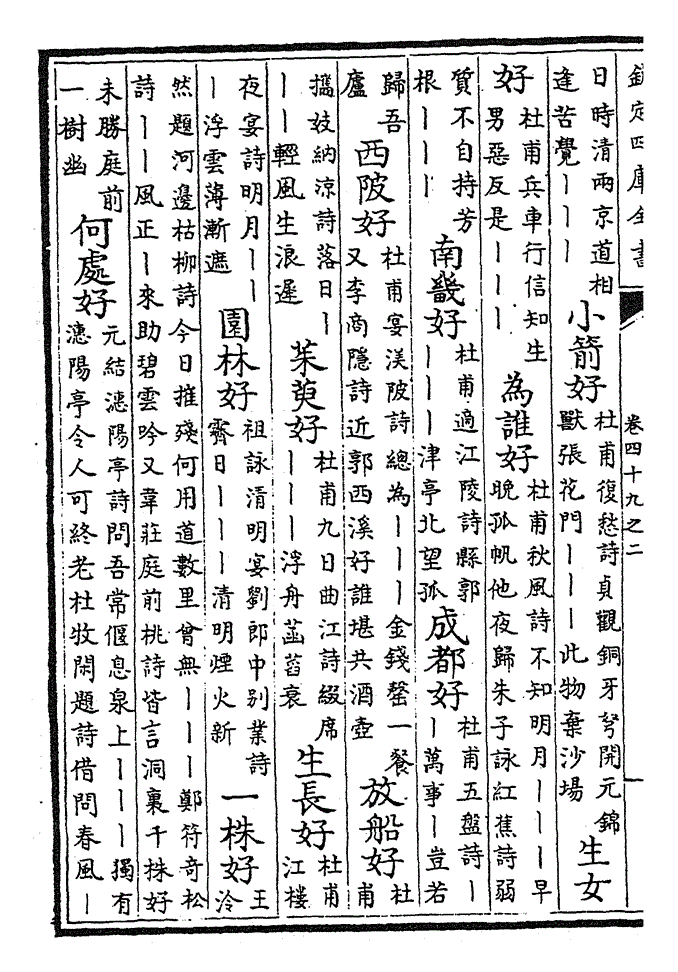 欽定四庫全書 卷四十九之二
日時清兩京道相
逢苦覺丨丨丨
小箭好
杜甫復愁詩貞觀銅牙弩開元錦
獸張花門丨丨丨此物棄沙場
生女
好
杜甫兵車行信知生
男惡反是丨丨丨
為誰好
杜甫秋風詩不知明月丨丨丨早
晚孤帆他夜歸朱子詠紅蕉詩弱
質不自持芳
根丨丨丨
南畿好
杜甫適江陵詩縣郭
丨丨丨津亭北望孤
成都好
杜甫五盤詩丨
丨萬事丨豈若
歸吾
廬
西陂好
杜甫宴渼陂詩總為丨丨丨金錢罄一餐
又李商隱詩近郭西溪好誰堪共酒壺
放船好
杜
甫
攜妓納涼詩落日丨
丨丨輕風生浪遲
茱萸好
杜甫九日曲江詩綴席
丨丨丨浮舟菡萏衰
生長好
杜甫
江樓
夜宴詩明月丨丨
丨浮雲薄漸遮
園林好
祖詠清明宴劉郎中别業詩
霽日丨丨丨清明煙火新
一株好
王
泠
然題河邊枯柳詩今日摧殘何用道數里曾無丨丨丨鄭符竒松
詩丨丨風正丨來助碧雲吟又韋莊庭前桃詩皆言洞裏千株好
未勝庭前
一樹幽
何處好
元結潓陽亭詩問吾常偃息泉上丨丨丨獨有
潓陽亭令人可終老杜牧閑題詩借問春風丨